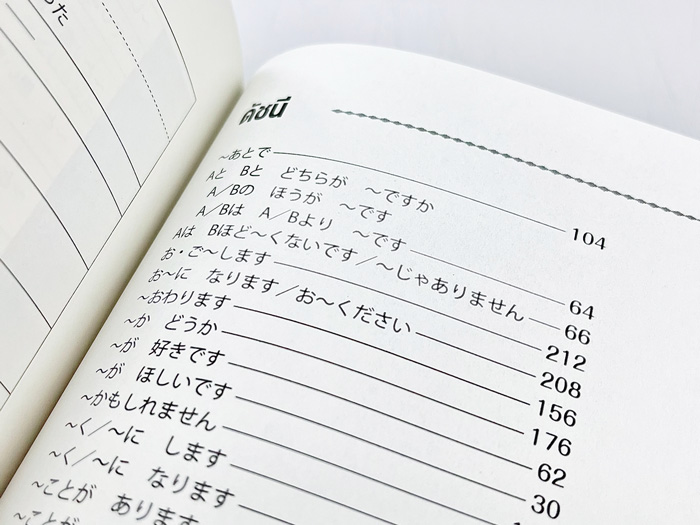 ดัชนี
～あとで 104
Aと Bと どちらが ～ですか
A／Bの ほうが ～です
A／Bは A／Bより ～です 64
Aは Bほど～くないです／～じゃありません 66
お・ご～します 212
お～に なります／お～ください 208
～おわります 156
～か どうか 176
～が 好きです 62
～が ほしいです 30
～かもしれません
～く／～に します
～く／～に なります
～ことが あります
～ことが